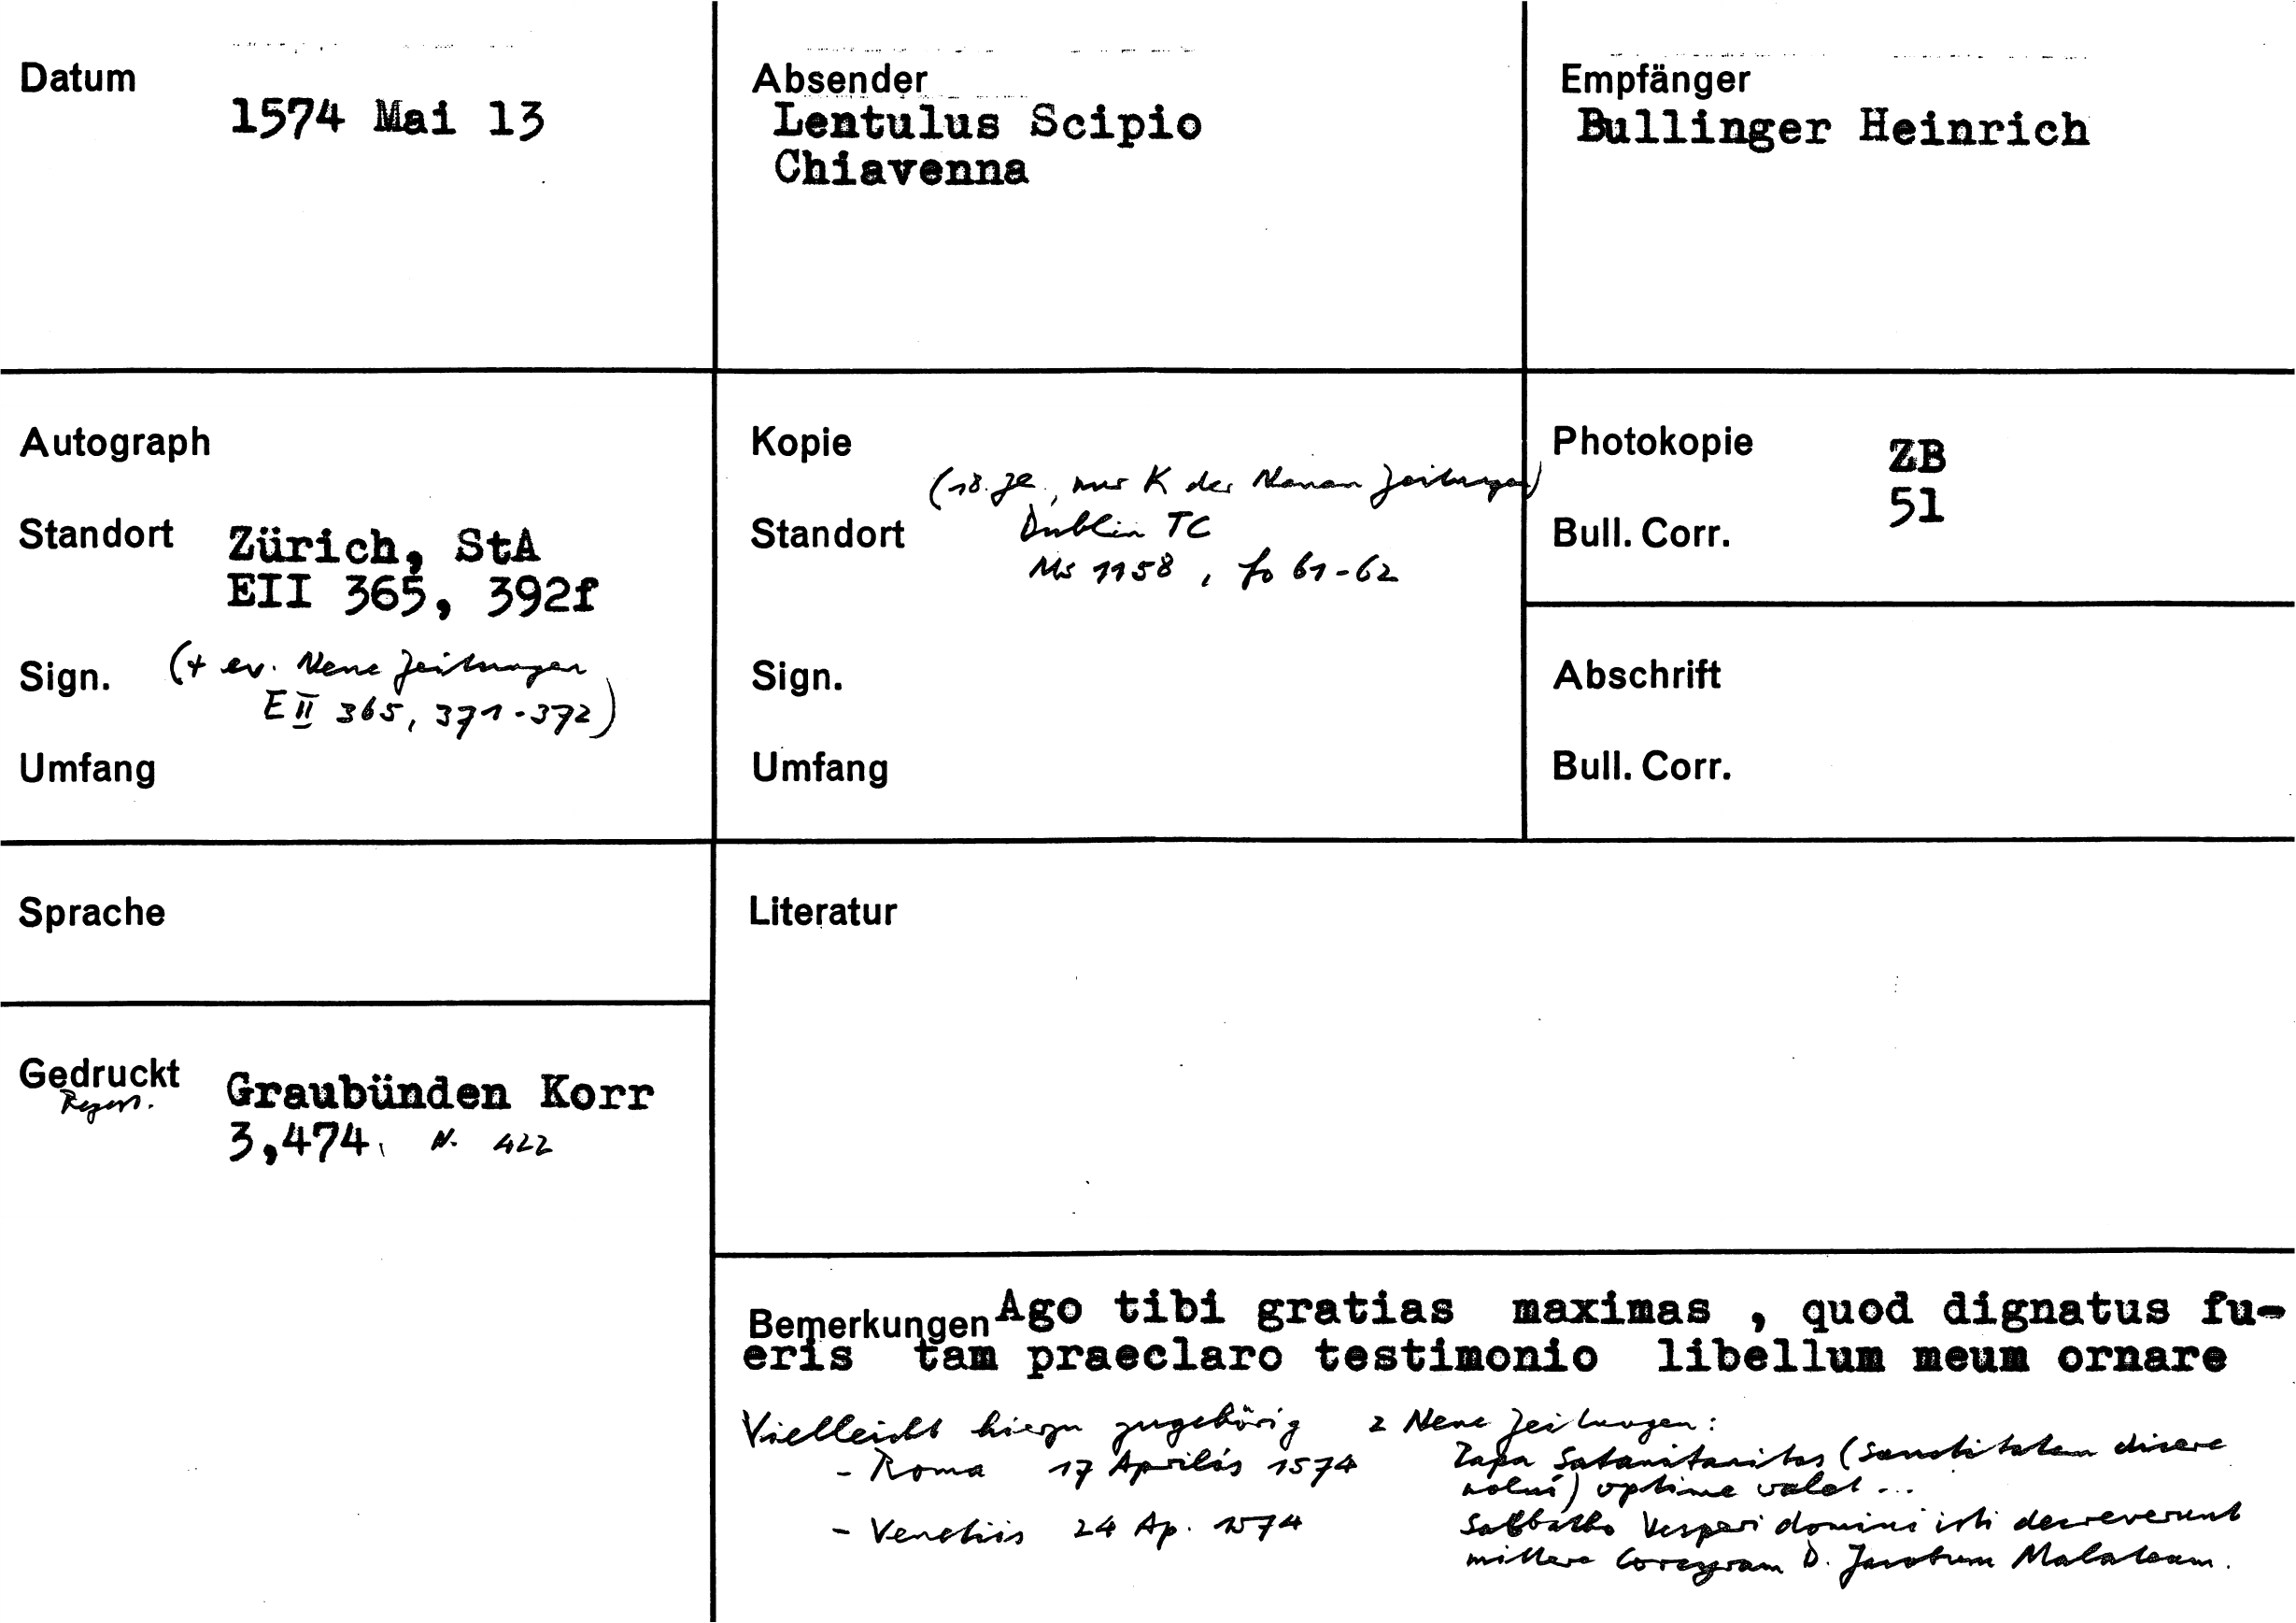 Datum
1574 Mai 13
Absender
Lentulus Scipio
Chiavenna
Empfänger
Bullinger Heinrich
Autograph
Standort Zürich, StA
EII 365, 392f
Sign. (+ ev. Neue Zeitungen
E II 365, 371-372)
Umfang
Kopie
(18. Jh., nur K der Neuen Zeitungen)
Standort Dublin TC
Ms 1158, fo 61-62
Sign.
Umfang
Photokopie ZB
Bull. Corr. 51
Abschrift
Bull. Corr.
Sprache
Literatur
Gedruckt Graubünden Korr
Regest.
3,474. N. 422
Bemerkungen Ago tibi gratias maximas , quod dignatus fu-
eris tam praeclaro testimonio libellum meum ornare
Vielleicht hiezu zugehörig 2 Neue Zeitungen:
- Roma 17 Aprilis 1574 Papa Satanitanitas (sanctitatem dicere
nolui) optime valet ...
- Venetiis 24 Ap. 1574 Sabbatho Vesperi domini isti decreverunt
mittere Corcyram D. Jacobum Malateam.